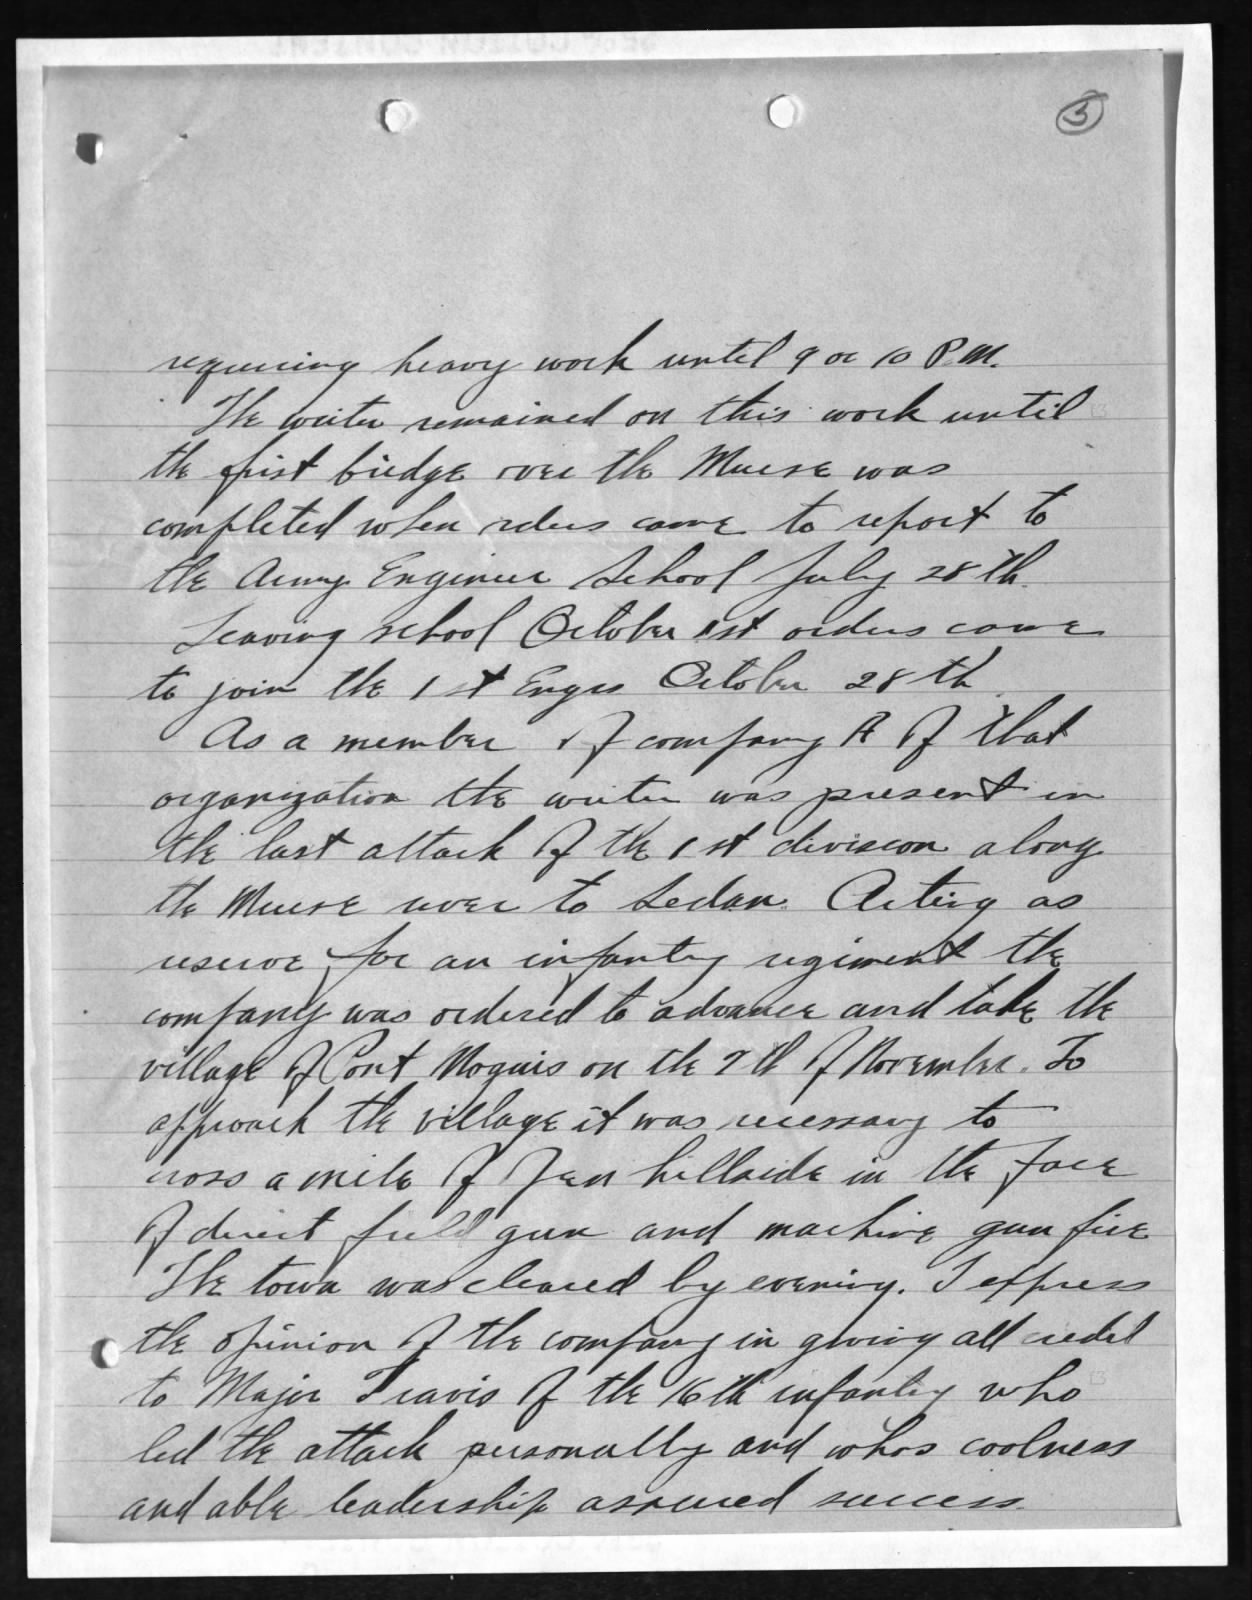 5
requiring heavy work until 9 or 10 P.M.
The writer remained on this work until
the first bridge over the Muese was
completed when orders came to report to
the Army Engineer School July 28th.
Leaving school October 1st orders came
to join the 1st Engrs October 28th
As a member of company A of that
organization the writer was present in
the last attack of the 1st division along
the Muese river to Sedan. Acting as
reserve for an infantry regiment the
company was ordered to advance and take the
village of Pont Moguis on the 7th of November. To
approach the village it was necessary to
cross a mile of open hillside in the face
of direct field gun and machine gun fire
The town was cleared by evening. I express
the opinion of the company in giving all credit
to Major Travis of the 16th infantry who
led the attack personally and whos coolness
and able leadership assured success.